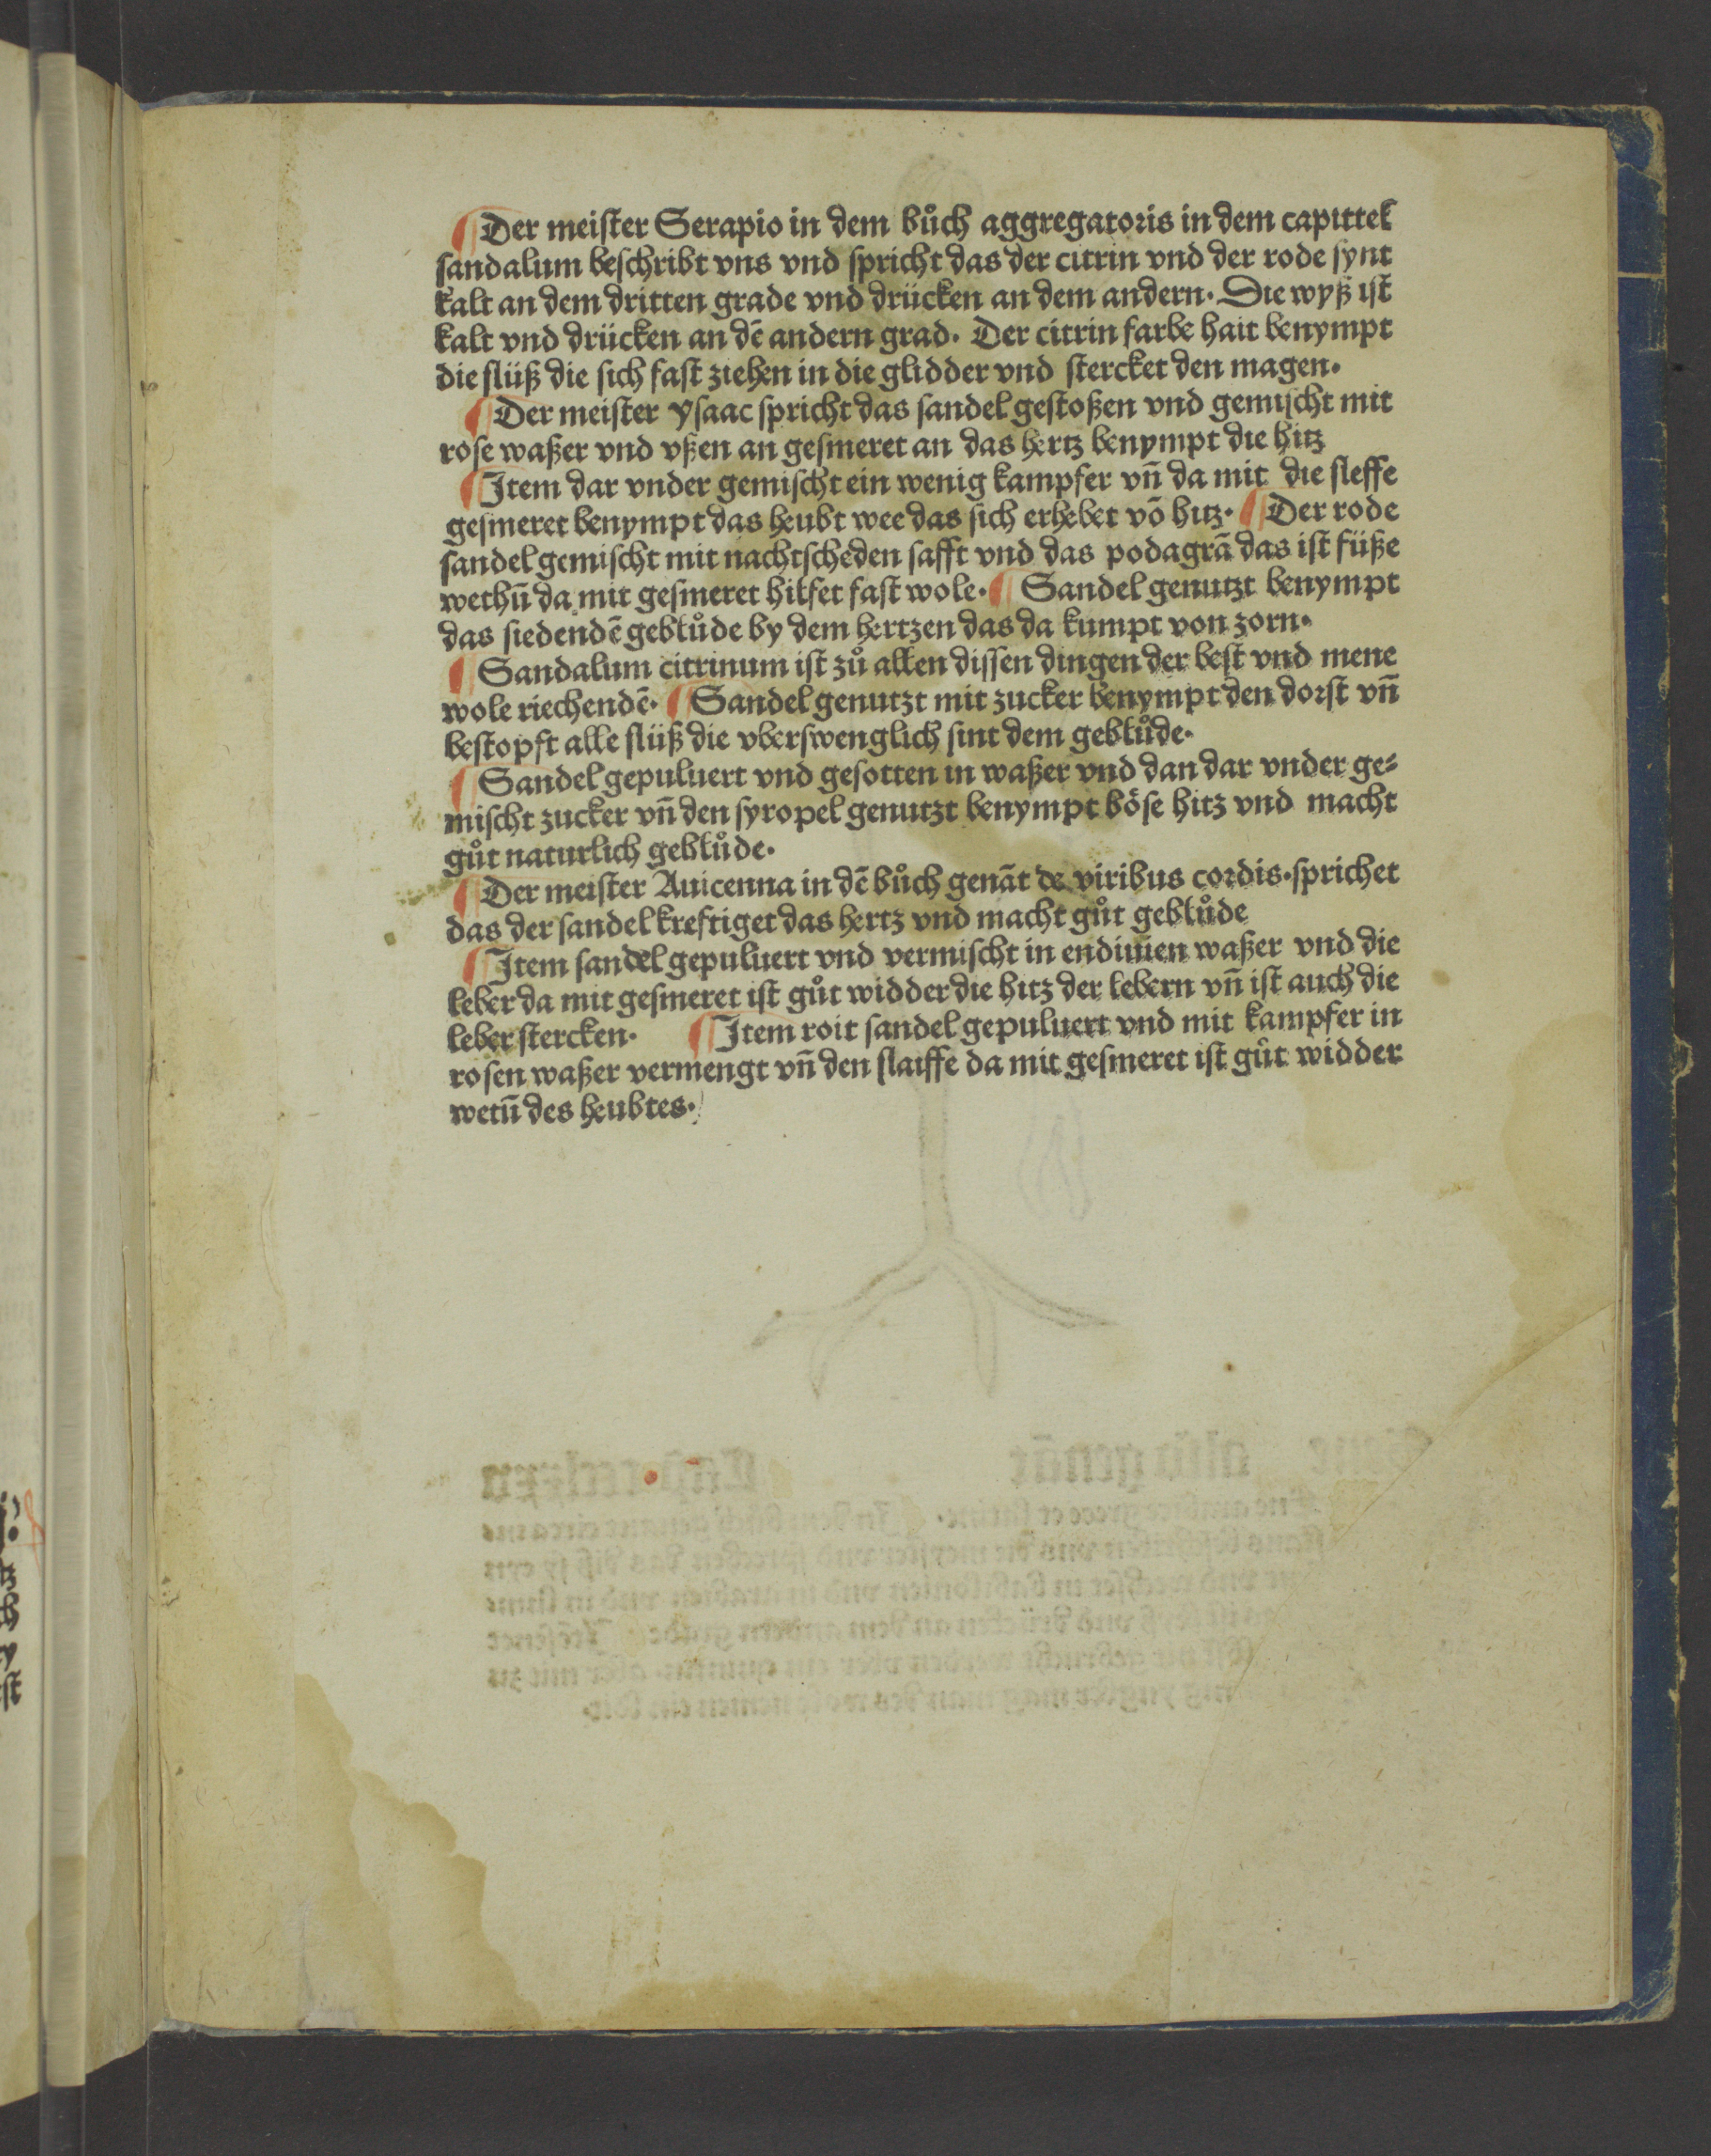 ¶ Der meiſter Serapio in dem bůch aggregatoris in dem capittel
ſandalum beſchribt vns vnd ſpricht das der citrin vnd der rode ſynt
kalt an dem dritten grade vnd drücken an dem andern. Die wyß iſt
kalt vnd drücken an dē andern grad. Der citrin farbe hait benympt
die flüß die ſich faſt ziehen in die glidder vnd ſtercket den magen.
¶ Der meiſter yſaac ſpricht das ſandel geſtoßen vnd gemiſcht mit
roſe waßer vnd vßen an geſmeret an das hertz benympt die hitz
¶ Item dar vnder gemiſcht ein wenig kampfer vn̄ da mit die ſleffe
geſmeret benympt das heubt wee das ſich erhebet vō hitz. ¶ Der rode
ſandel gemiſcht mit nachtſcheden ſafft vnd das podagrā das iſt füße
wethū da mit geſmeret hilfet faſt wole. ¶ Sandel genutzt benympt
das ſiedendē geblůde by dem hertzen das da kumpt von zorn.
¶ Sandalum citrinum iſt zů allen diſſen dingen der beſt vnd mene
wole riechendē. ¶ Sandel genutzt mit zucker benympt den dorſt vn̄
beſtopft alle flüß die vberſwenglich ſint dem geblůde.
¶ Sandel gepuluert vnd geſotten in waßer vnd dan dar vnder ge⸗
miſcht zucker vn̄ den ſyropel genutzt benympt böſe hitz vnd macht
gůt naturlich geblůde.
¶ Der meiſter Auicenna in dē bůch genāt de viribus cordis. ſprichet
das der ſandel kreftiget das hertz vnd macht gůt geblůde
¶ Item ſandel gepuluert vnd vermiſcht in endiuien waßer vnd die
leber da mit geſmeret iſt gůt widder die hitz der lebern vn̄ iſt auch die
leber ſtercken. ¶ Item roit ſandel gepuluert vnd mit kampfer in
roſen waßer vermengt vn̄ den ſlaiffe da mit geſmeret iſt gůt widder
wetū des heubtes.